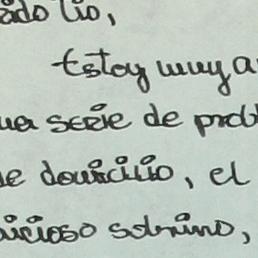 ado tío,
Estoy muy a
na serie de prob
e domicilio, el
icioso sobrino,